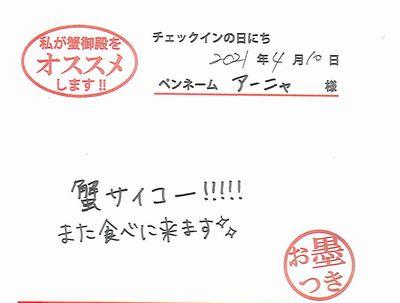 私が蟹御殿を
オススメ
します!!
チェックインの日にち
2021年4月10日
ペンネーム アーニャ 様
蟹サイコー!!!!!
また食べに来ます
お墨
つき